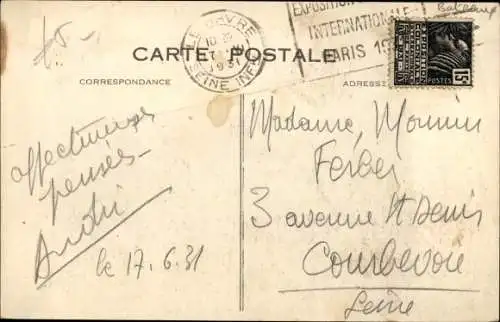 Bateaux
LE HAVRE
10
17
1931
SEINE INFRE
EXPOSITION
INTERNATIONALE
PARIS 19
15c
POSTES
CARTE POSTALE
CORRESPONDANCE
ADRESSE
Affectueuses
pensées
André
le 17.6.31
Madame, Monsieur
Ferber
3 avenue St Denis
Courbevoie
Seine